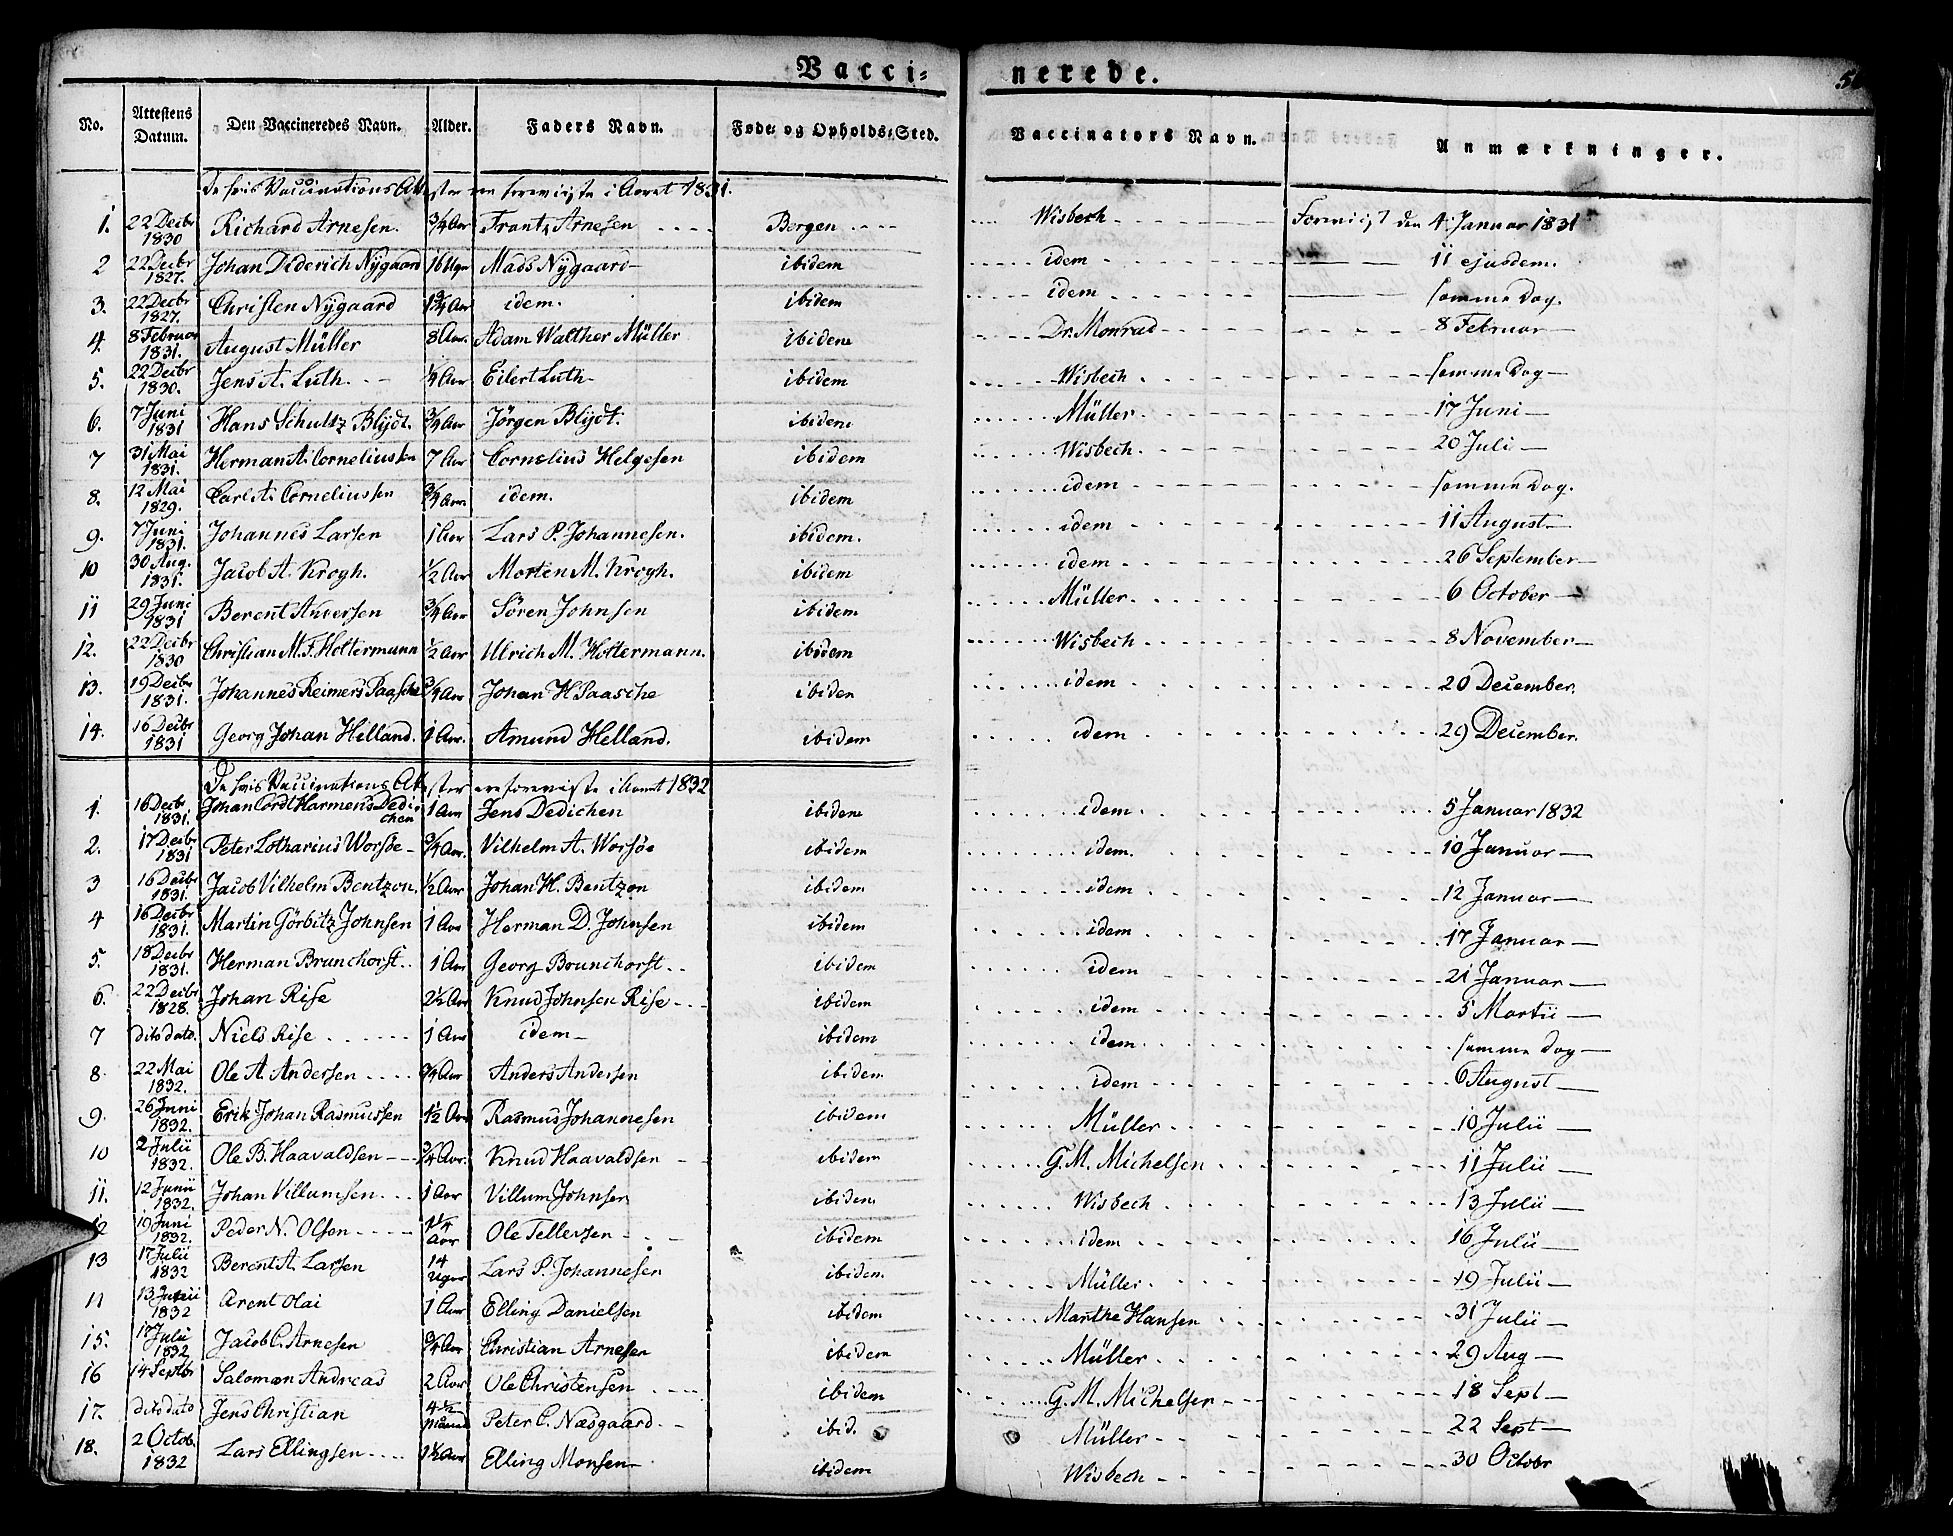 Vacci= nerede.
No. Attestens Datum. Den Vaccineredes Navn. Alder. Faders Navn. Føde= og Opholds=Sted. Vaccinators Navn. Anmærkninger.
Vaccinations Attester ere foreviiste i Aaret 1831.
1. 22 Decbr 1830 Richard Arnesen. 3/4 Aar Frantz Arnesen Bergen Wisbech Foreviist den 4 Januar 1831
2 22 Decbr 1827. Johan Diderich Nÿgaard 16 Uger Mads Nÿgaard ibidem idem 11 ejusdem.
3. 22 Decbr 1827. Christen Nÿgaard 1 3/4 Aar idem. ibidem idem samme Dag.
4. 8 Februar 1831. August Müller 8 Aar. Adam Walther Müller ibidem Dr. Monrad 8 Februar
5. 22 Decbr 1830. Jens A. Luth. Aar Eilert Luth ibidem Wisbech samme Dag
6. 7 Juni 1831 Hans Schultz Blÿdt. 3/4 Aar Jörgen Blÿdt. ibidem Müller 17 Juni
7 31 Mai 1831. Herman A. Corneliussen 7 Aar Cornelius Helgesen ibidem Wisbech 20 Juli
8. 12 Mai 1829. Carl A. Corneliussen 3/4 Aar idem. ibidem idem samme Dag.
9. 7 Juni 1831. Johannes Larsen 1 Aar Lars P. Johannesen. ibidem. idem 11 August
10 30 Aug. 1831. Jacob A. Krogh. 1/2 Aar Morten M. Krogh. ibidem idem 26 September
11 29 Juni 1831 Berent Andersen 3/4 Aar Sören Johnsen ibidem Müller 6 October
12. 22 Decbr 1830 Christian M. F. Holtermann 1/2 Aar Ulrich M. Holtermann. ibidem Wisbech 8 November
13. 19 Decbr 1831. Johannes Reimers Paasche 3/4 Aar Johan H Paasche ibidem idem 20 December.
14. 16 Decbr 1831 Georg Johan Helland. 1 Aar. Amund Helland. ibidem idem 29 December.
Vaccinations Attester ere foreviiste i Aaret 1832
1. 16 Decbr 1831. Johan Cordt Harmens Dedichen 1 Aar Jens Dedichen ibidem idem 5 Januar 1832
2. 17 Decbr 1831 Peter Lotharius Worsöe 3/4 Aar. Vilhelm A. Worsöe ibidem idem. 10 Januar
3 16 Decbr 1831. Jacob Vilhelm Bentzon. 1/2 Aar Johan H. Bentzon ibidem idem 12 Januar
4 16 Decbr 1831. Martin Görbitz Johnsen 1 Aar Herman D. Johnsen ibidem idem 17 Januar
5. 18 Decbr 1831. Herman Brunchorst 1 Aar Georg Brunchorst ibidem idem 21 Januar
6. 22 Decbr 1828. Johan Rise 2 1/2 Aar Knud Johnsen Rise ibidem idem 5 Martii
7 dito dato. Niels Rise 1 Aar idem ibidem idem samme Dag
8. 22 Mai 1832. Ole A. Andersen 3/4 Aar Anders Andersen ibidem idem 6 August
9. 26 Juni 1832. Erik Johan Rasmussen 1 1/2 Aar Rasmus Johannesen ibidem Müller 10 Julii
10 2 Julii 1832. Ole B. Haavaldsen 3/4 Aar. Knud Haavaldsen ibidem G. M. Michelsen 11 Julii
11. 12 Junii 1832. Johan Villumsen 1 Aar Villum Johnsen ibidem Wisbech 13 Julii
12 19 Juni 1832. Peder N. Olsen 1 1/4 Aar Ole Tellefsen ibidem idem 16 Julii
13 17 Julii 1832 Berent A. Larsen 14 Uger Lars P. Johannesen ibidem Müller 19 Julii
13 1832 Arent Olai 1 Aar Elling Danielsen ibidem Marthe Hansen 31 Julii
15. 17 Julii 1832 Jacob C. Arnesen 3/4 Aar Christian Arnesen ibidem Müller 29 Aug
16 14 Septbr Salomon Andreas 2 Aar Ole Christensen ibidem G. M. Michelsen 18 Sept
17. dito dato Jens Christian 4 1/2 Maaned Peter C. Næsgaard ibid. Müller 22 Sept
18. 2 Octob. 1832 Lars Ellingsen Aar Elling Monsen ibidem Wisbech 30 Octobr